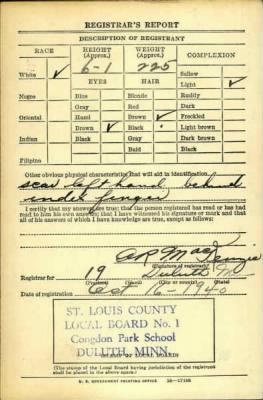 REGISTRAR'S REPORT
DESCRIPTION OF REGISTRANT
RACE HEIGHT (Approx.) WEIGHT (Approx.) COMPLEXION
White ✓ 6-1 225 Sallow
EYES HAIR Light ✓
Negro Blue Blonde Ruddy
Gray Red Dark
Oriental Hazel Brown ✓ Freckled
Brown ✓ Black Light brown
Indian Black Gray Dark brown
Bald Black
Filipino
Other obvious physical characteristics that will aid in identification
scar left hand, behind
index finger
I certify that my answers are true; that the person registered has read or has had
read to him his own answers; that I have witnessed his signature or mark and that
all of his answers of which I have knowledge are true, except as follows:
(Signature of registrar)
Registrar for 19 Duluth
(City or county) (State)
Date of registration Oct 16-1940
ST. LOUIS COUNTY
LOCAL BOARD No. 1
Congdon Park School
DULUTH, MINN.
(The stamp of the Local Board having jurisdiction of the registrant
shall be placed in the above space.)
U. S. GOVERNMENT PRINTING OFFICE 16-17105